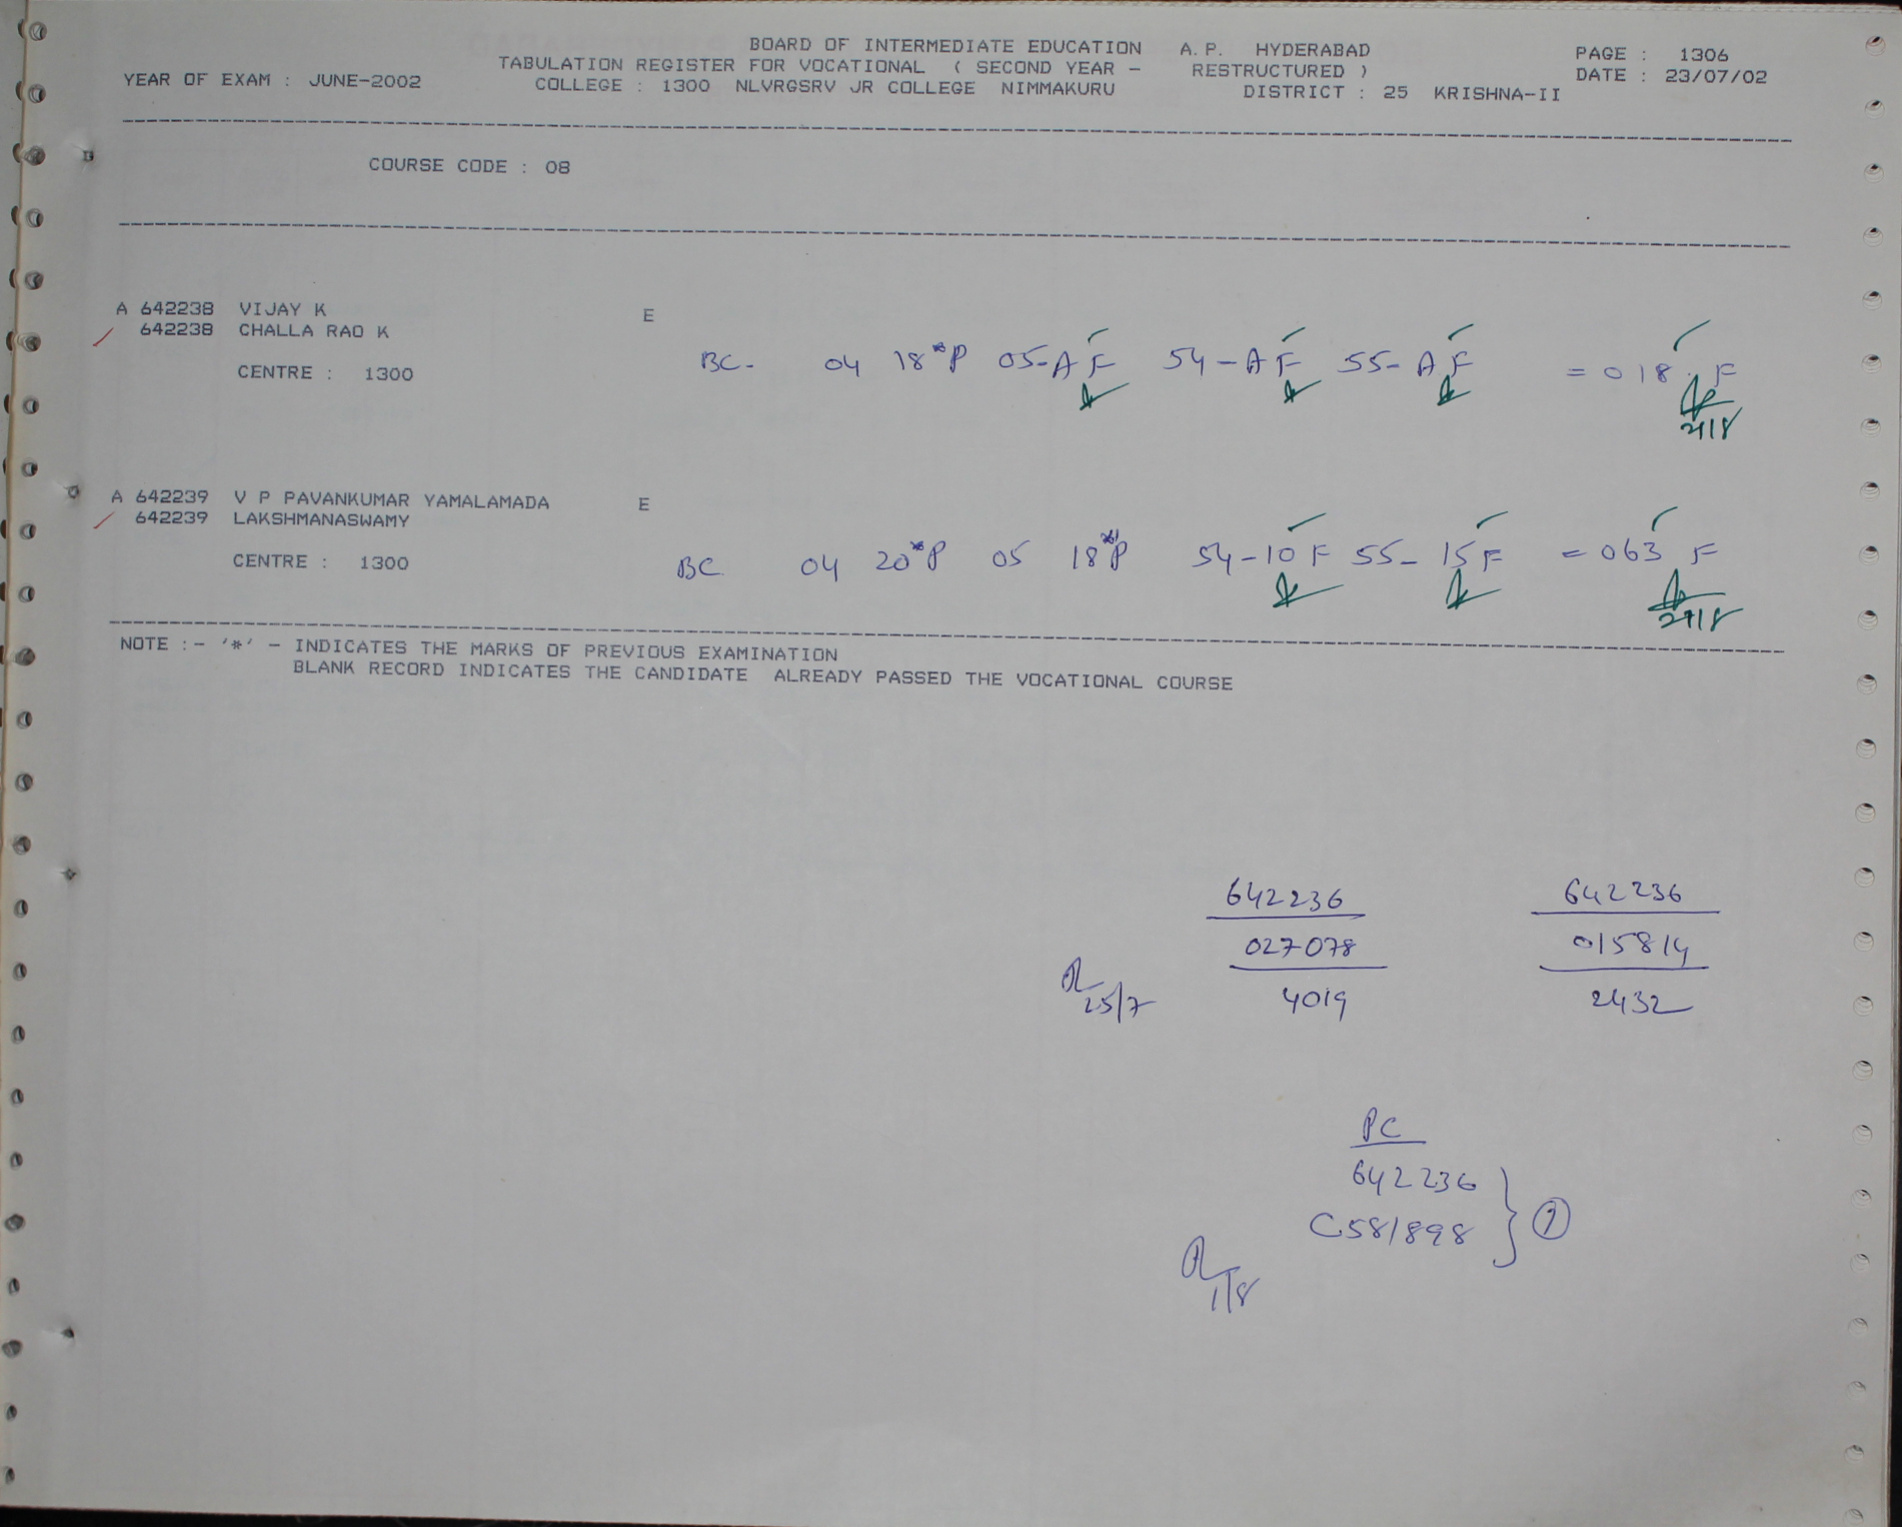 BOARD OF INTERMEDIATE EDUCATION A.P. HYDERABAD PAGE : 1306
TABULATION REGISTER FOR VOCATIONAL ( SECOND YEAR - RESTRUCTURED ) DATE : 23/07/02
YEAR OF EXAM : JUNE-2002 COLLEGE : 1300 NLVRGSRV JR COLLEGE NIMMAKURU DISTRICT : 25 KRISHNA-II
COURSE CODE : 08
A 642238 VIJAY K E
642238 CHALLA RAO K
BC- 04 18*P 05-A F 54-A F 55-A F = 018 F
CENTRE : 1300
2/18
A 642239 V P PAVANKUMAR YAMALAMADA E
642239 LAKSHMANASWAMY
CENTRE : 1300
BC 04 20*P 05 18*P 54-10 F 55-15 F = 063 F
NOTE :- '*' - INDICATES THE MARKS OF PREVIOUS EXAMINATION
BLANK RECORD INDICATES THE CANDIDATE ALREADY PASSED THE VOCATIONAL COURSE
642236 642236
027078 015814
25/7 4019 2432
PC
642236
C581898 1
1/8